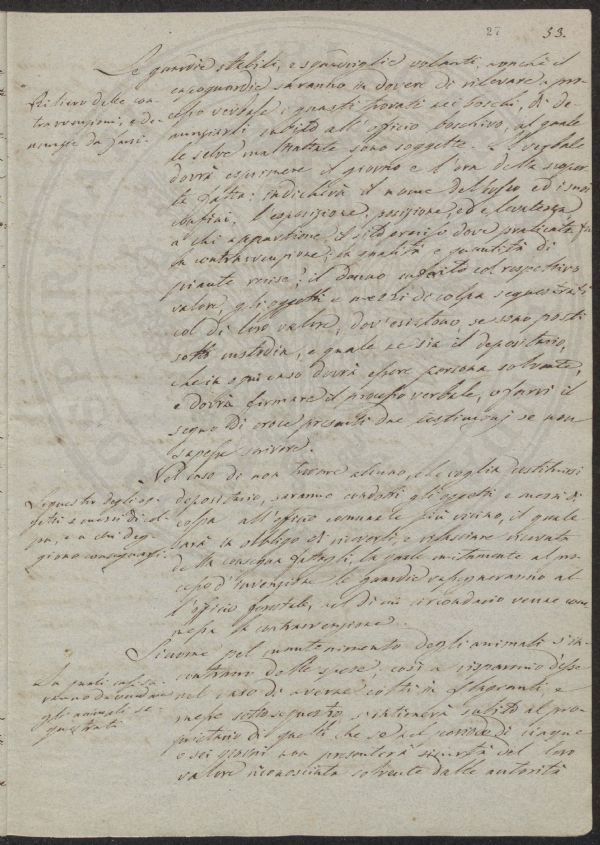 27 33.
Le guardie stabili, e squadriglie volanti, nonchè il
capoguardie saranno in dovere di rilevare a pro-
cesso verbale i guasti trovati nei boschi, di de-
nunziarli subito all'officio boschivo, al quale
le selve maltrattate sono soggette. Il verbale
dovrà esprimere il giorno e l'ora della scoper-
ta fatta: indicherà il nome del bosco ed i suoi
confini, l'esposizione, posizione, ed
a chi appartiene, il sito preciso dove praticata fu
la contravvenzione; la qualità e quantità di
piante recise; il danno inferito col respettivo
valore, gli oggetti e mezzi di colpa sequestrati
col di loro valore, dov'esistono, se sono posti
sotto custodia, e quale ne sia il depositario,
che in ogni caso dovrà essere persona solvente,
e dovrà firmare il processo verbale, o farvi il
segno di croce presenti due testimonj se non
sapesse scrivere.
Rilievo delle con-
travvenzioni, e de-
nunzie da farsi.
Nel caso di non trovare alcuno, che voglia costituirsi
depositario, saranno condotti gli oggetti e mezzi di
colpa all'officio comunale più vicino, il quale
sarà in obbligo di riceverli e rilasciare ricevuta
della consegna fattagli, la quale unitamente al pro-
cesso d'invenzione le guardie rassegneranno al-
l'officio forestale, nel di cui circondario venne com-
messa la contravvenzione.
Sequestro degli og-
getti e mezzi di col-
pa, e a chi deg-
giono consegnarsi.
Siccome pel mantenimento degli animali s'in-
contrano delle spese, così a risparmio d'esse
nel caso di averne colti in flagranti, e
messi sotto sequestro, s'intimerà subito al pro-
prietario di quelli che se nel corso di cinque
o sei giorni non presenterà sicurtà del loro
valore riconosciuta solvente dalle autorità
In quali casi sa-
ranno da vendere
gli animali se-
questrati